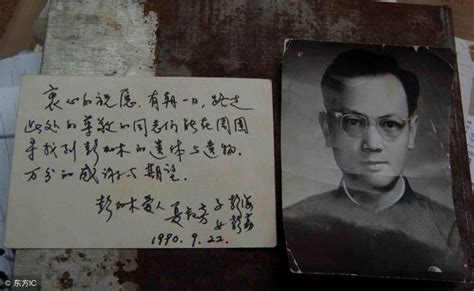 衷心的祝愿，有朝一日，路过
此处的尊敬的同志们能在周围
寻找到彭加木的遗体与遗物．
万分的感谢与期望．
彭加木爱人 夏叔芳 子 彭海
女 彭荔
1990.9.22.
© 东方IC